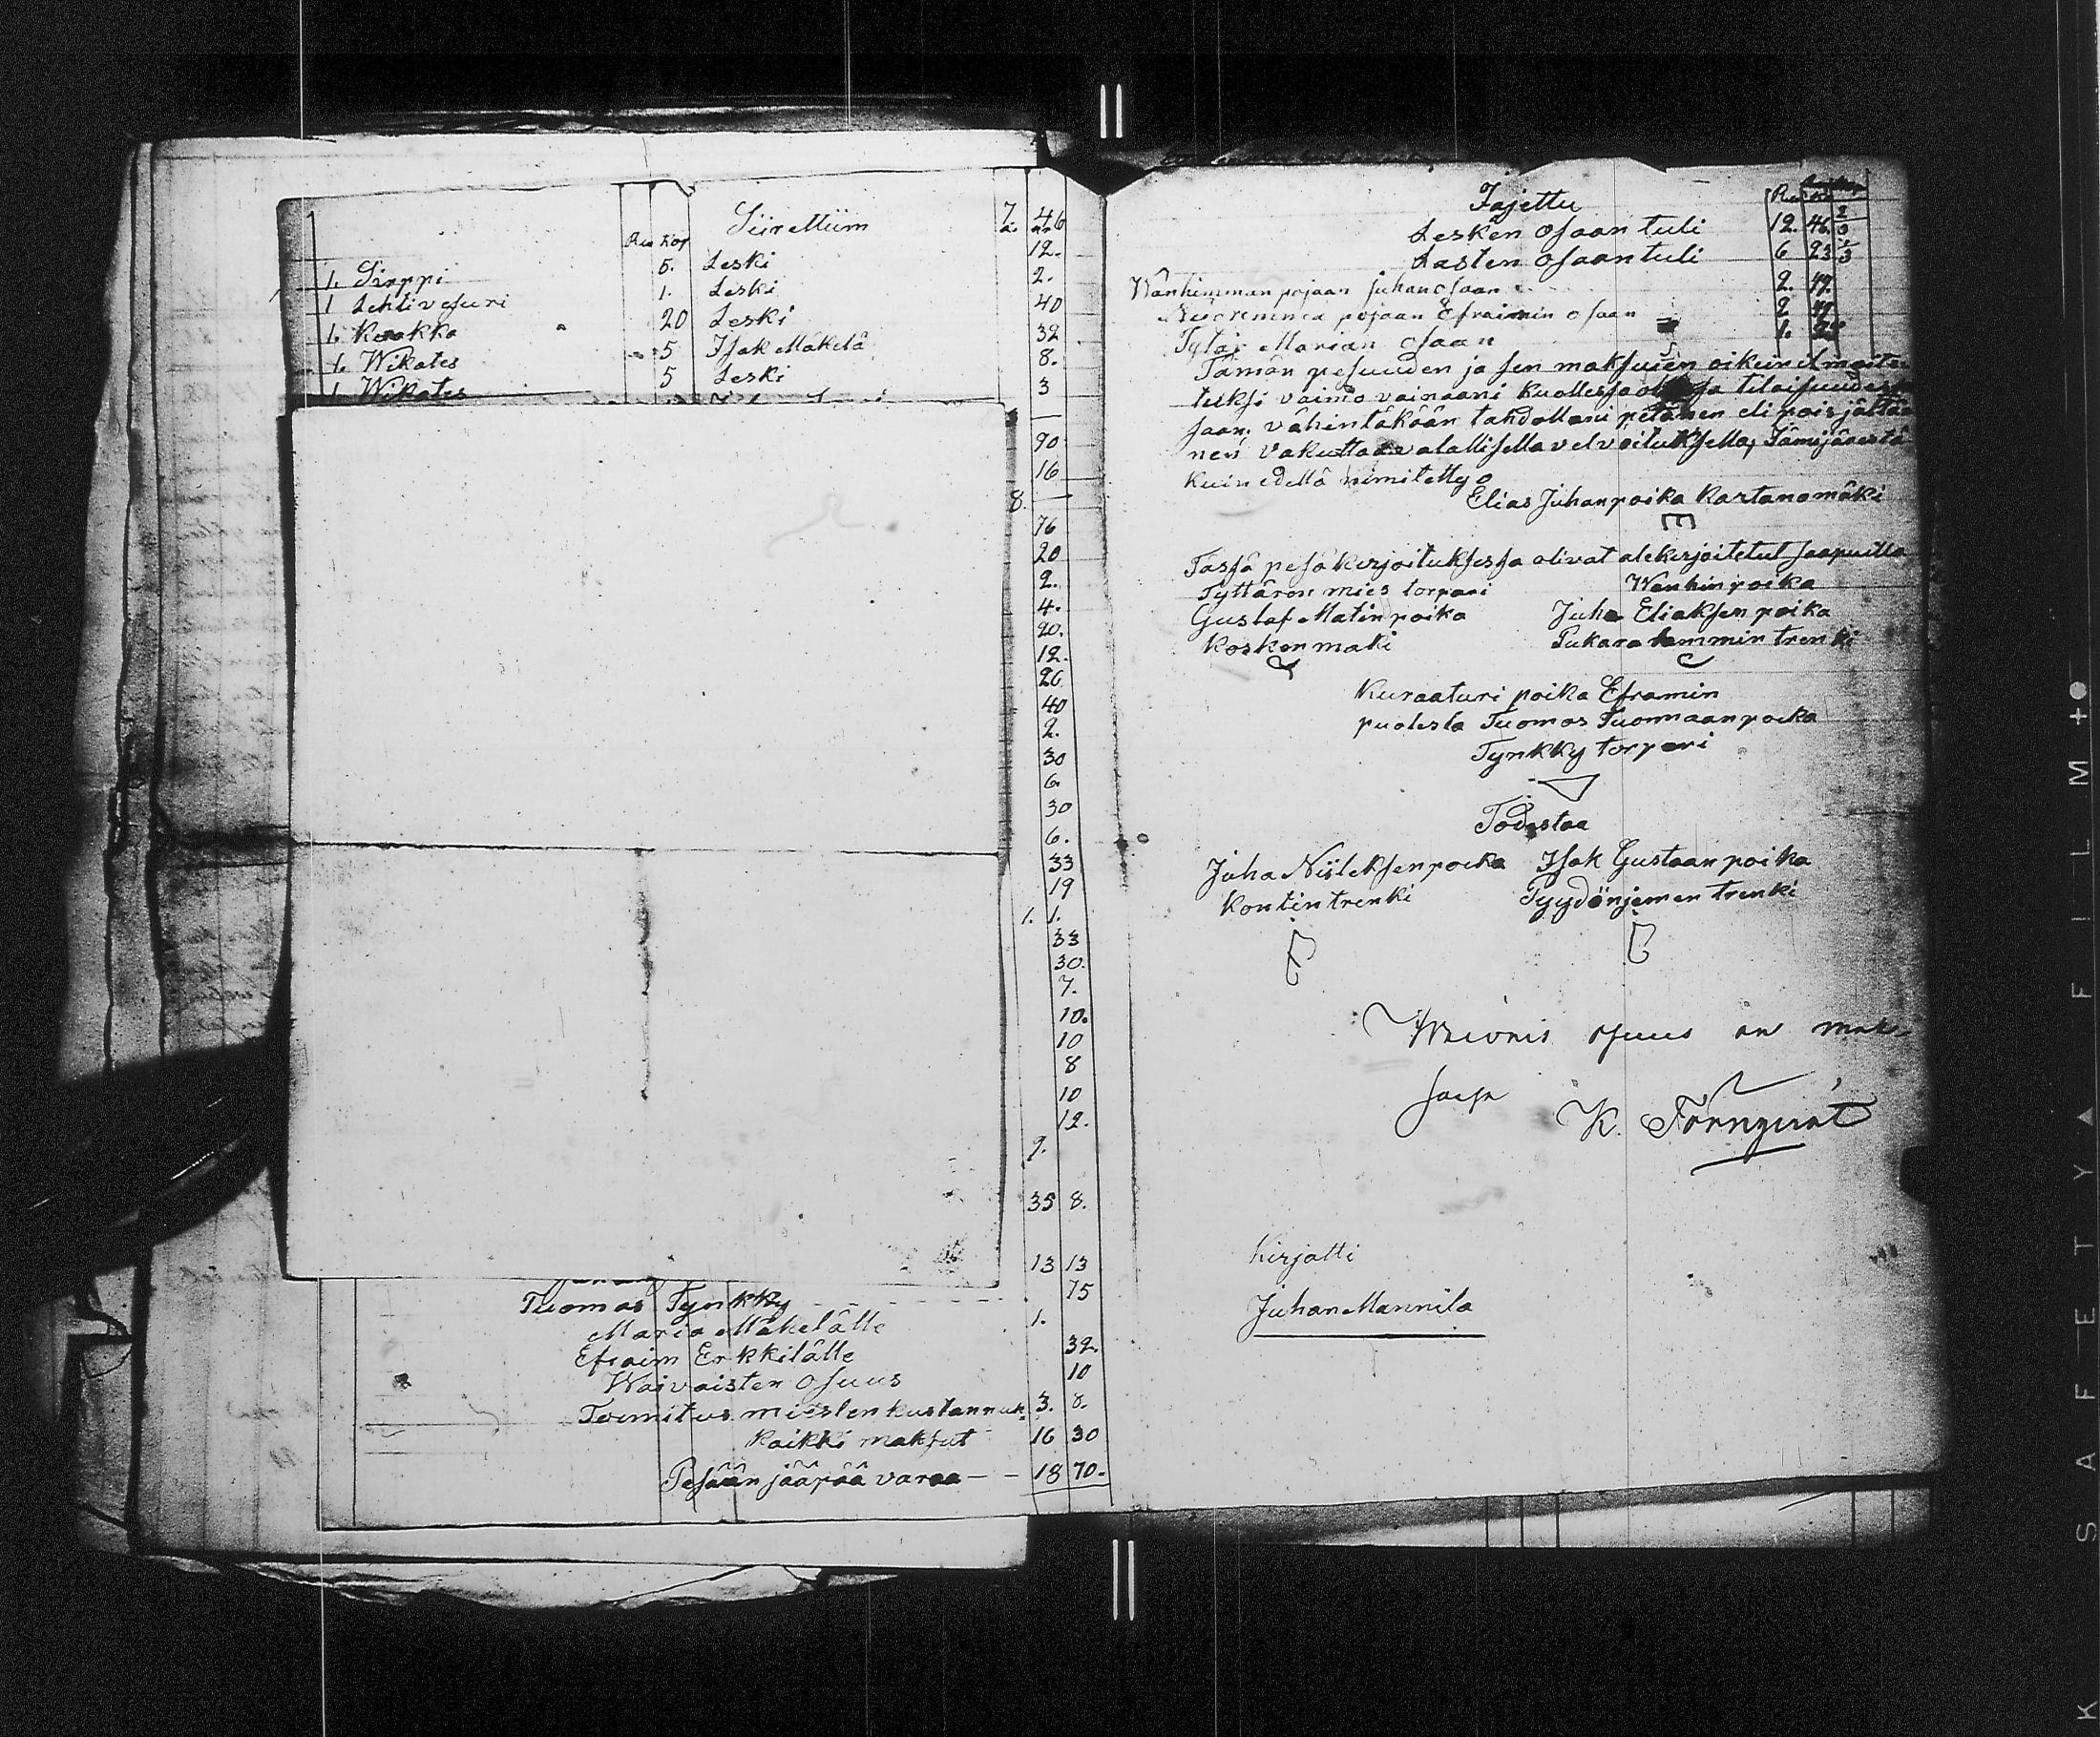 Siirettiim 7. 46
Ru Kop
12.
1. Sirppi 5. Leski 2.
1 Lehtivesuri 1. Leski 40
1. Kuokka 20 Leski 32
1. Wikates 5 Isak Mäkelä 8.
1. Wikates 5 Leski 3
90
16
8.
76
20
2.
4.
20.
12.
26
40
2.
30
6.
30
6.
33
19
1. 1.
33
30.
7.
10.
10
8
10
12.
9.
35 8.
13 13
Tuomas Tynkky 75
Maria Mäkelälle 1.
Efraim Erkkilälle 32.
Waivaisten osuus 10
Toimitus miesten kustannuk. 3. 8.
kaikki maksut 16 30
Pesään jääpää varaa - - 18 70.
Jajettu
Lesken osaan tuli 12. 46. 2/3
Lasten osaan tuli 6 23 1/3
Wanhimman pojaan Juhan osaan 2. 49.
Nuoremman pojaan Efraimin osaan 2 49
Tytär Marian osaan 1.
Tämän pesuuden ja sen maksuien oikein ilmoite
tuksi vaimo vainaani kuollessa tilaisuudessa
saan, vähintäkään tahdollani petämen eli pois jättä
nen vakuttaa valallisella velvoituksella, Jämijärestä
kuin edellä nimitetty
Elias Juhanpoika Kartanomäki
Tässä pesäkirjoituksessa olivat alekirjoitetut saapuilla
Tyttären mies torpari Wanhin poika
Gustaf Matinpoika Juha Eliaksen poika
Koskenmäki Pukara lammin trenki
Kuraaturi poika Eframin
puolesta Tuomas Tuomaanpoika
Tynkky torpari
Todistaa
Juha Niileksenpoika Isak Gustaanpoika
Kontin trenki Pyydänjemen trenki
Waivais osuus on mak-
settu
K. Törnqvist
Kirjatti
Juhan Mannila
K SAFETY ▲ FILM +●